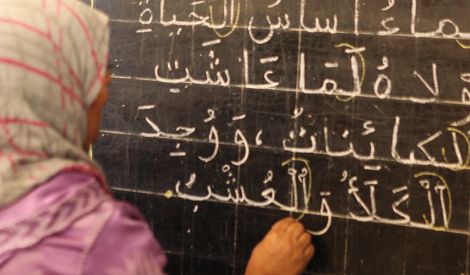 ماءُ اساسُ الْحَيَاةِ
ولاهُ لَمَا عَاشَتِ
الْكَائِنَاتُ، وَوُجِدَ
اَلْكَلَأُ وَالْعُشْبُ.